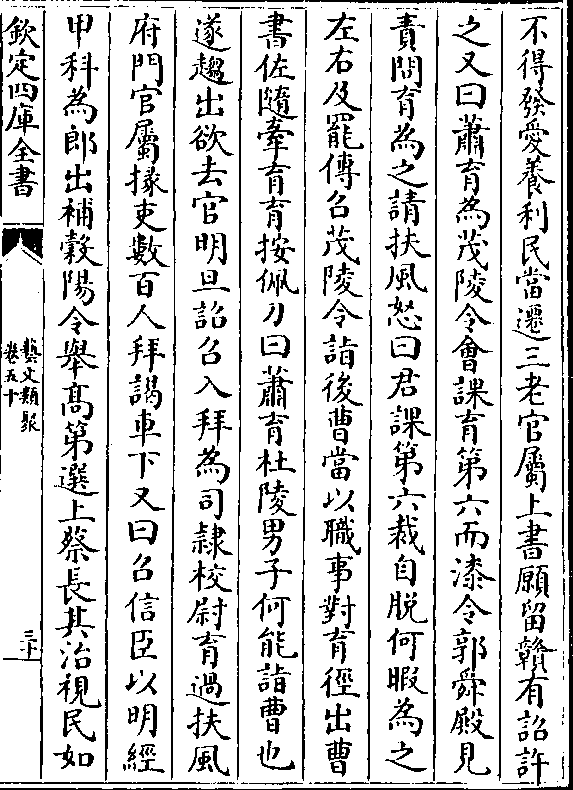 不得發愛養利民當遷三老官屬上書願留贛有詔許
之又曰蕭育為茂陵令會課育第六而漆令郭舜殿見
責問育為之請扶風怒曰君課第六裁自脫何暇為之
左右及罷傳召茂陵令詣後曹當以職事對育徑出曹
書佐隨牽育育按佩刀曰蕭育杜陵男子何能詣曹也
遂趨出欲去官明旦詔召入拜為司隷校尉育過扶風
府門官屬掾吏數百人拜謁車下又曰召信臣以明經
甲科為郎出補穀陽令舉髙第選上蔡長其治視民如
欽定四庫全書
藝文類聚
卷五十